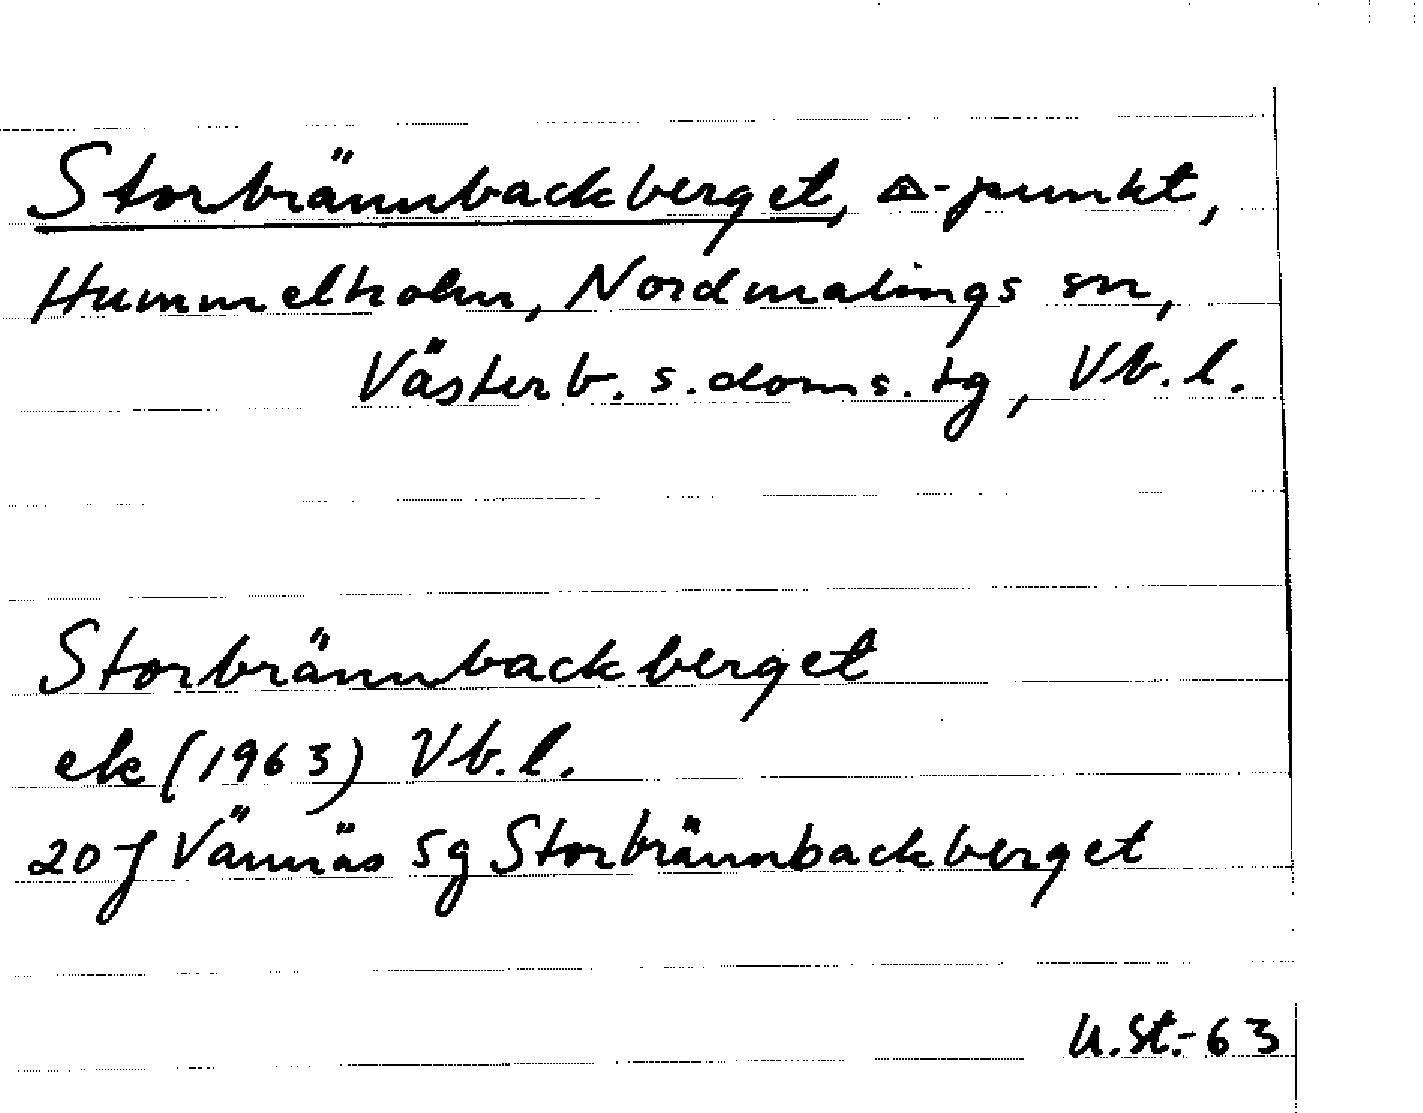 Storbrännbackberget, △-punkt,
Hummelholm, Nordmalings sn,
Västerb. s. doms. tg, Vb. l.
Storbrännbackberget
ek (1963) Vb. l.
20 J Vännäs 5g Storbrännbackberget
U. St.-63